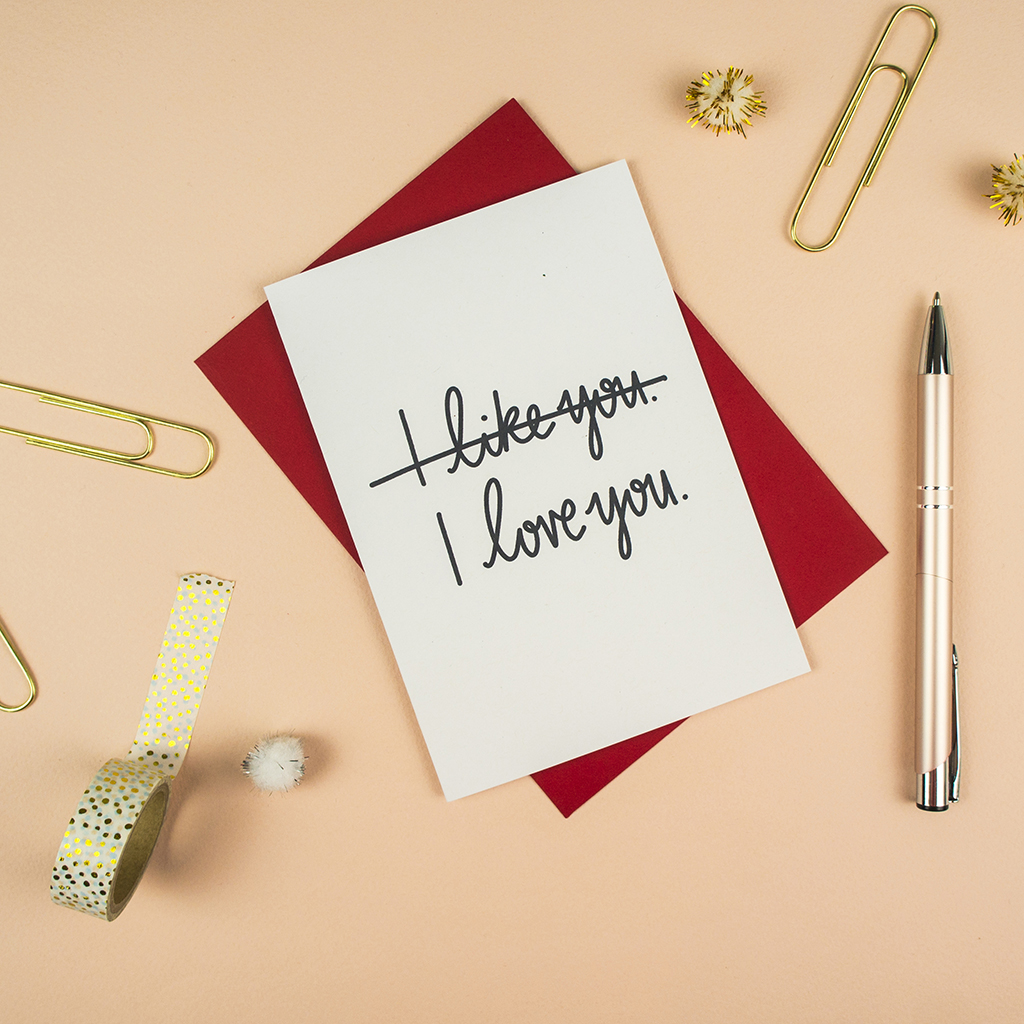 I like you.
I love you.